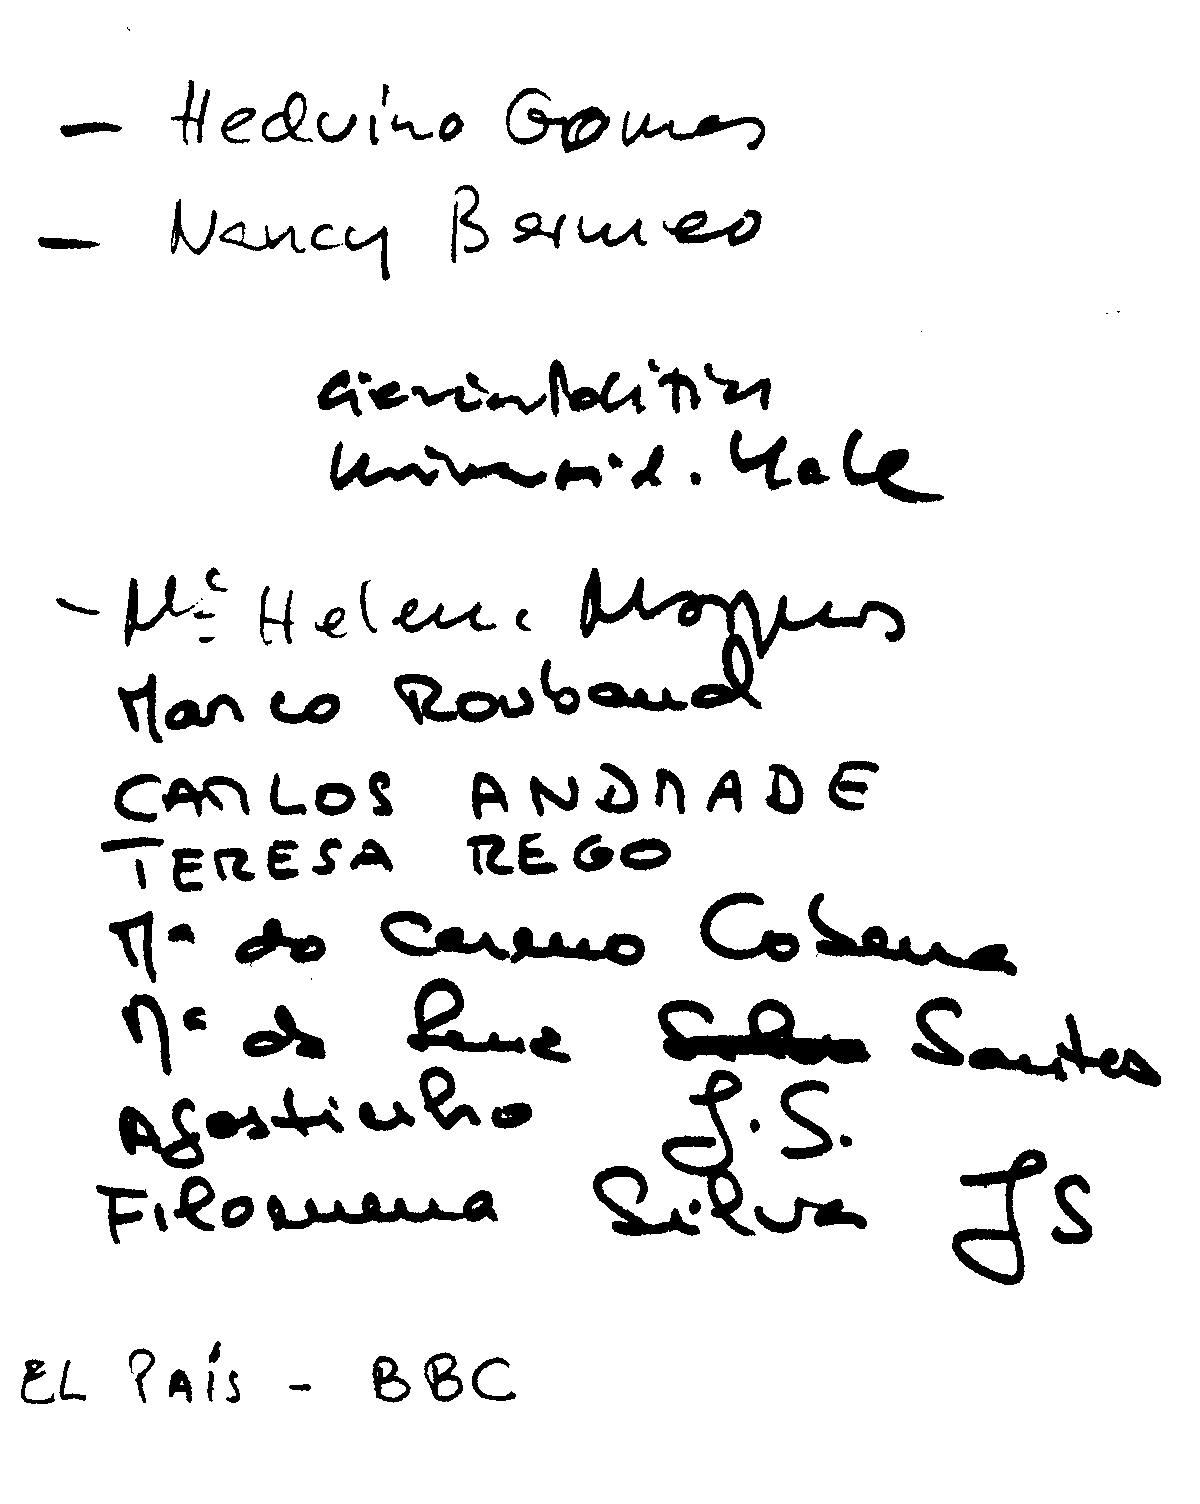 - Heduíno Gomes
- Nancy Bermeo
Ciência Política
Universid. Yale
- Mª Helena Marques
Marco Roubaud
CARLOS ANDRADE
TERESA REGO
Mª do Carmo
Mª da Luz Silva Santos
Agostinho J.S.
Filomena Silva JS
EL PAÍS - BBC